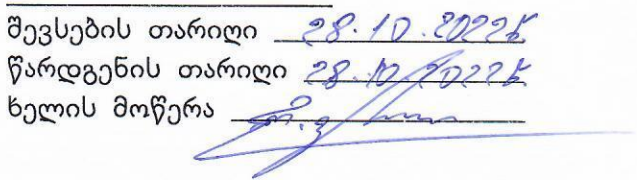 შევსების თარიღი 28.10.2022წ
წარდგენის თარიღი 28.10.2022წ
ხელის მოწერა